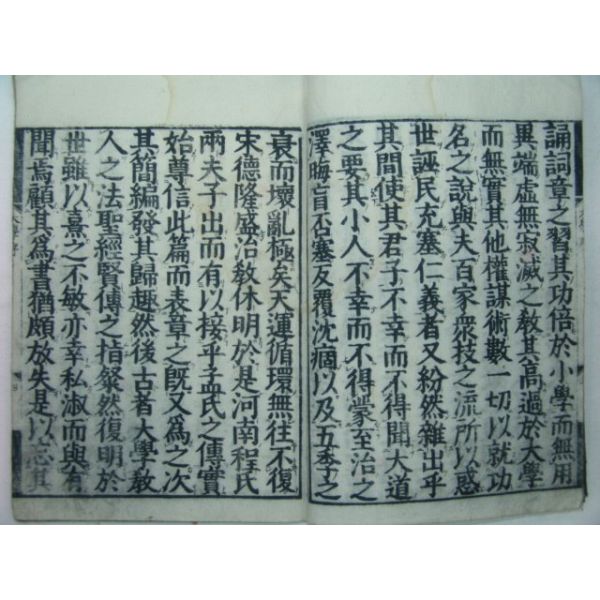 誦詞章之習其功倍於小學而無用
異端虛無寂滅之敎其高過於大學
而無實其他權謀術數一切以就功
名之說與夫百家衆技之流所以惑
世誣民充塞仁義者又紛然雜出乎
其間使其君子不幸而不得聞大道
之要其小人不幸而不得蒙至治之
澤晦盲否塞反覆沈痼以及五季之
衰而壞亂極矣天運循環無往不復
宋德隆盛治敎休明於是河南程氏
兩夫子出而有以接乎孟氏之傳實
始尊信此篇而表章之旣又爲之次
其簡編發其歸趣然後古者大學敎
人之法聖經賢傳之指粲然復明於
世雖以熹之不敏亦幸私淑而與有
聞焉顧其爲書猶頗放失是以忘其